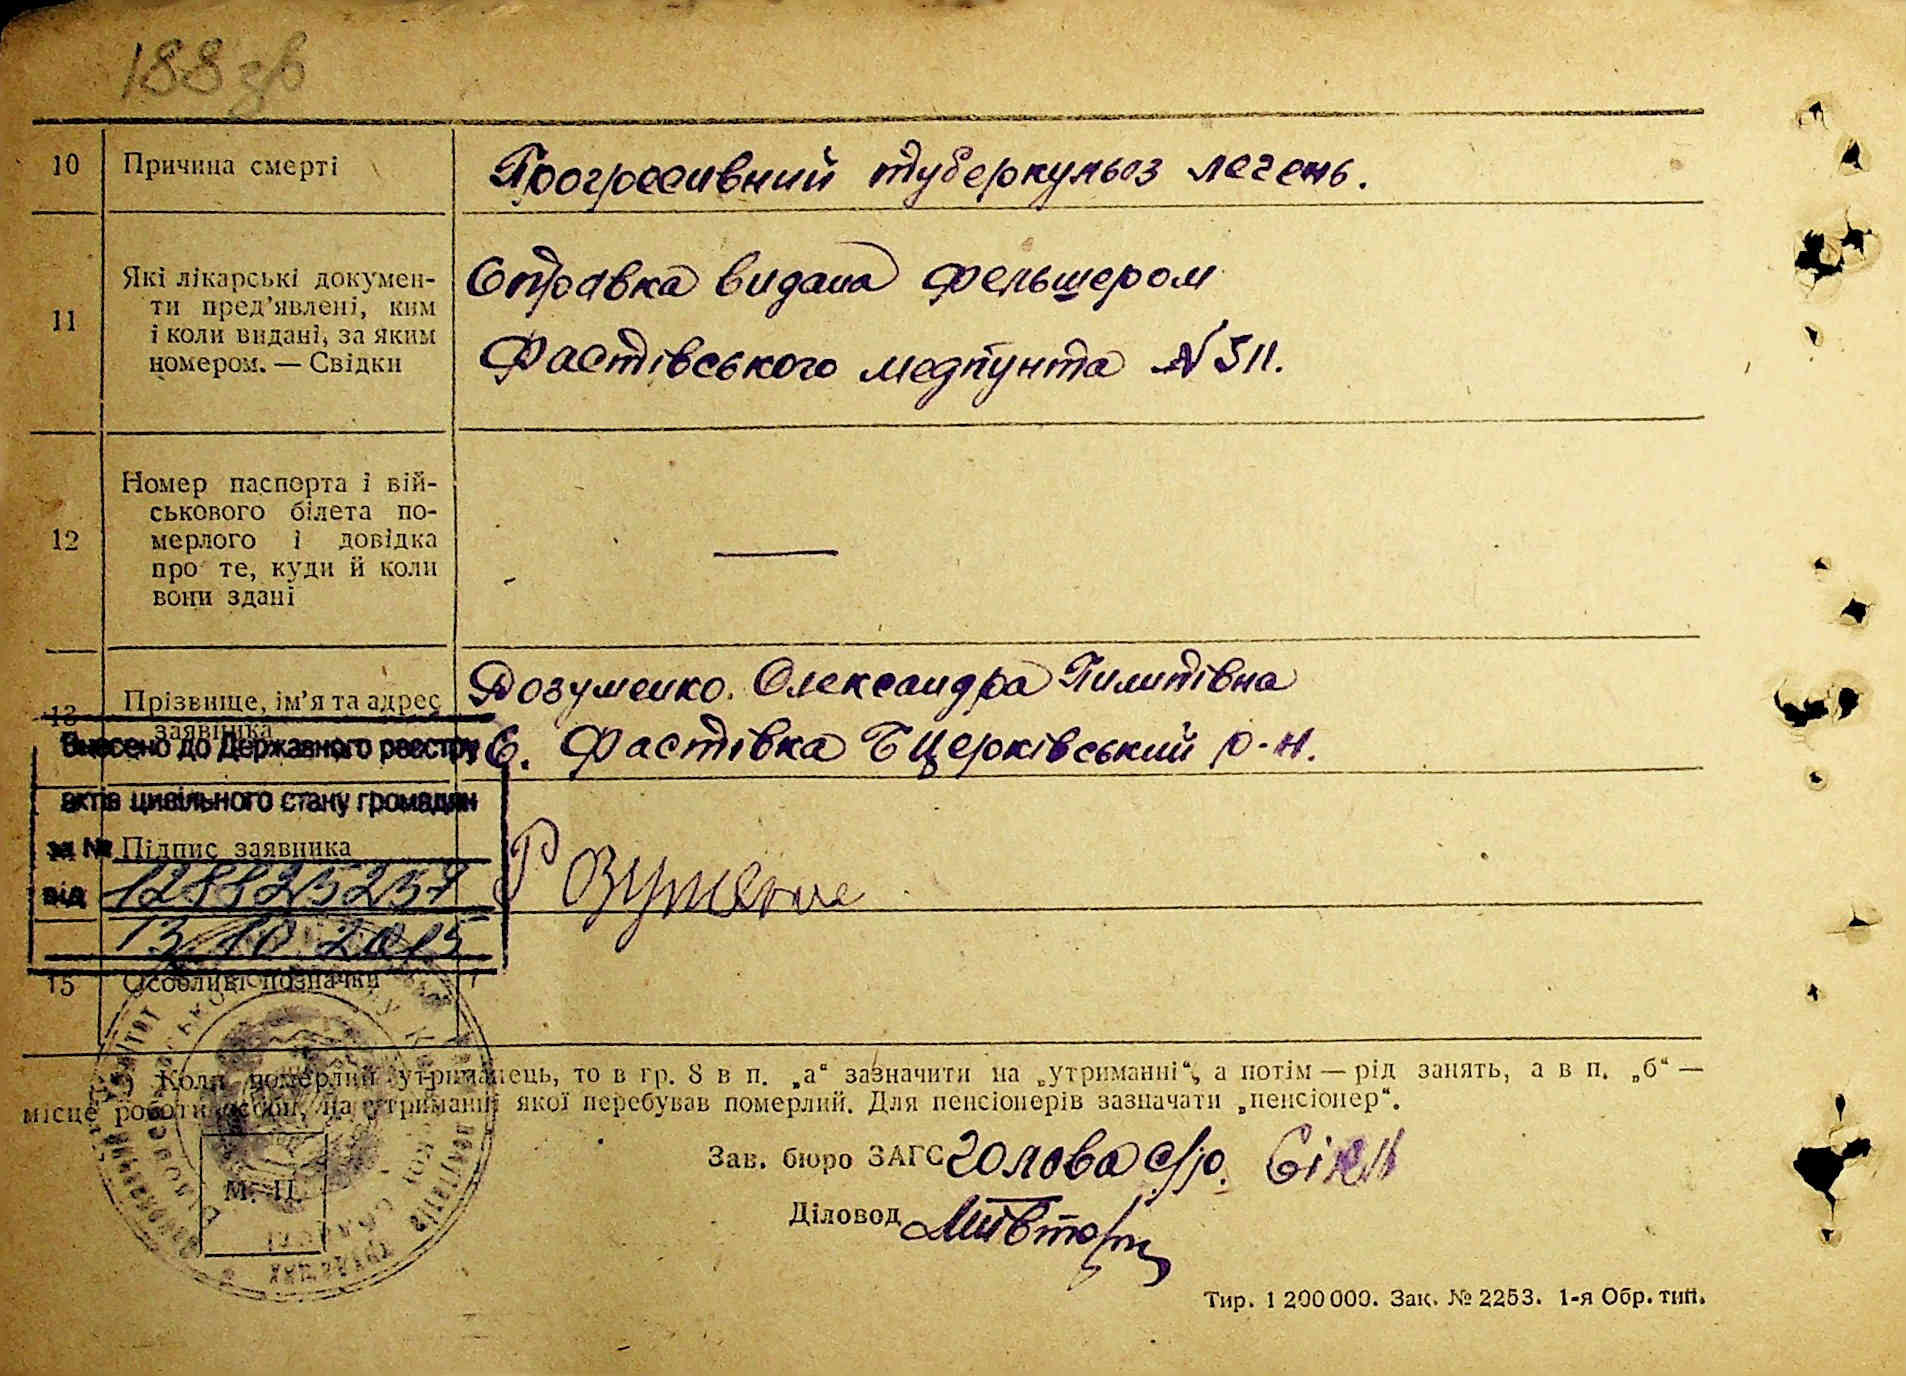 188 зв
10 Причина смерті Прогрессивний туберкульоз легень.
11 Які лікарські докумен-
ти пред'явлені, ким
і коли видані, за яким
номером. — Свідки
Справка видана фельшером
Фастівського медпункта №311.
12 Номер паспорта і вій-
ськового білета по-
мерлого і довідка
про те, куди й коли
вони здані
—
13 Прізвище, ім'я та адрес
заявника
Розуменко. Олександра Пилипівна
С. Фастівка БЦерківський р-н.
Внесено до Державного реєстру
актів цивільного стану громадян
за №
Підпис заявника
від 128825257
13.10.2015
15 Особливі позначки
*) Коли померлий утриманець, то в гр. 8 в п. „а“ зазначити на „утриманні“, а потім — рід занять, а в п. „б“ —
місце роботи особи, на утриманні якої перебував померлий. Для пенсіонерів зазначати „пенсіонер“.
М. П.
Зав. бюро ЗАГС голова с/р.
Діловод
Тир. 1 200 000. Зак. № 2253. 1-я Обр. тип.